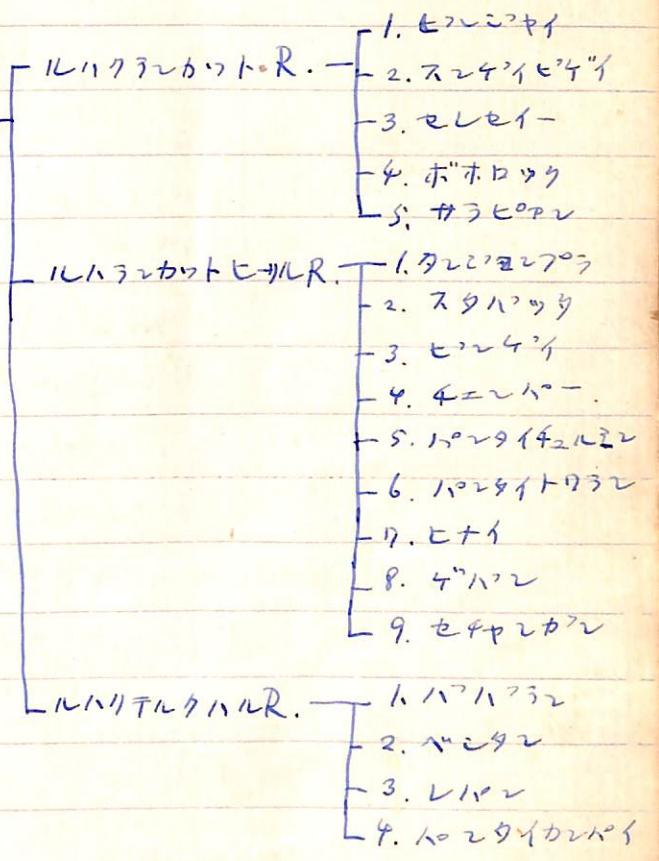 ルハクランカット・R.
1. ビンジャイ
2. スンゲイビゲイ
3. セレセイー
4. ボホロック
5. サラピアン
ルハランカットヒールR.
1. タンジヨンプラ
2. スタバック
3. ビンゲイ
4. チエンパー
5. パンタイチェルミン
6. パンタイトワラン
7. ヒナイ
8. ゲバン
9. セチャンガン
ルハリテルクハルR.
1. ババラン
2. ベシタン
3. レパン
4. パンタイカンパイ